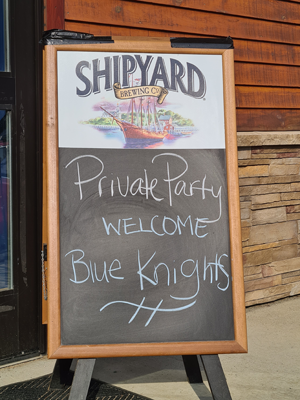 SHIPYARD
BREWING CO
Private Party
WELCOME
Blue Knights